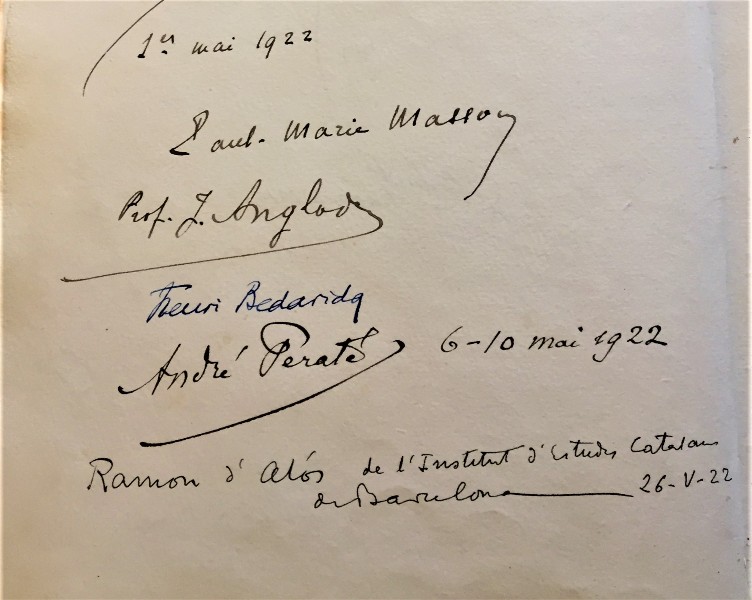 1er mai 1922
Paul-Marie Masson
Prof. J. Anglade
Henri Bedarida
André Pératé 6-10 mai 1922
Ramon d'Alós de l'Institut d'Estudis Catalans
de Barcelona 26-V-22